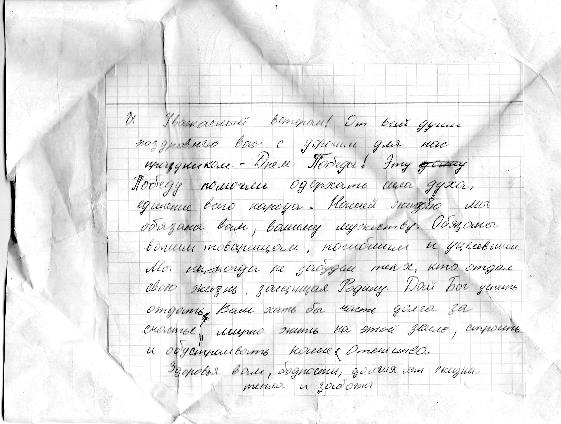 Уважаемый ветеран! От всей души
поздравляю вас с дорогим для нас
праздником - Днем Победы! Эту
Победу помогли одержать сила духа,
единение всего народа. Нашей жизнью мы
обязаны вам, вашему мужеству. Обязаны
вашим товарищам, погибшим и умершим.
Мы никогда не забудем тех, кто отдал
свою жизнь, защищая Родину. Дай Бог успеть
отдать Вам хотя бы часть долга за
счастье мирно жить на этой земле, строить
и обустраивать наше Отечество.
Здоровья вам, бодрости, долгих лет жизни
тепла и заботы